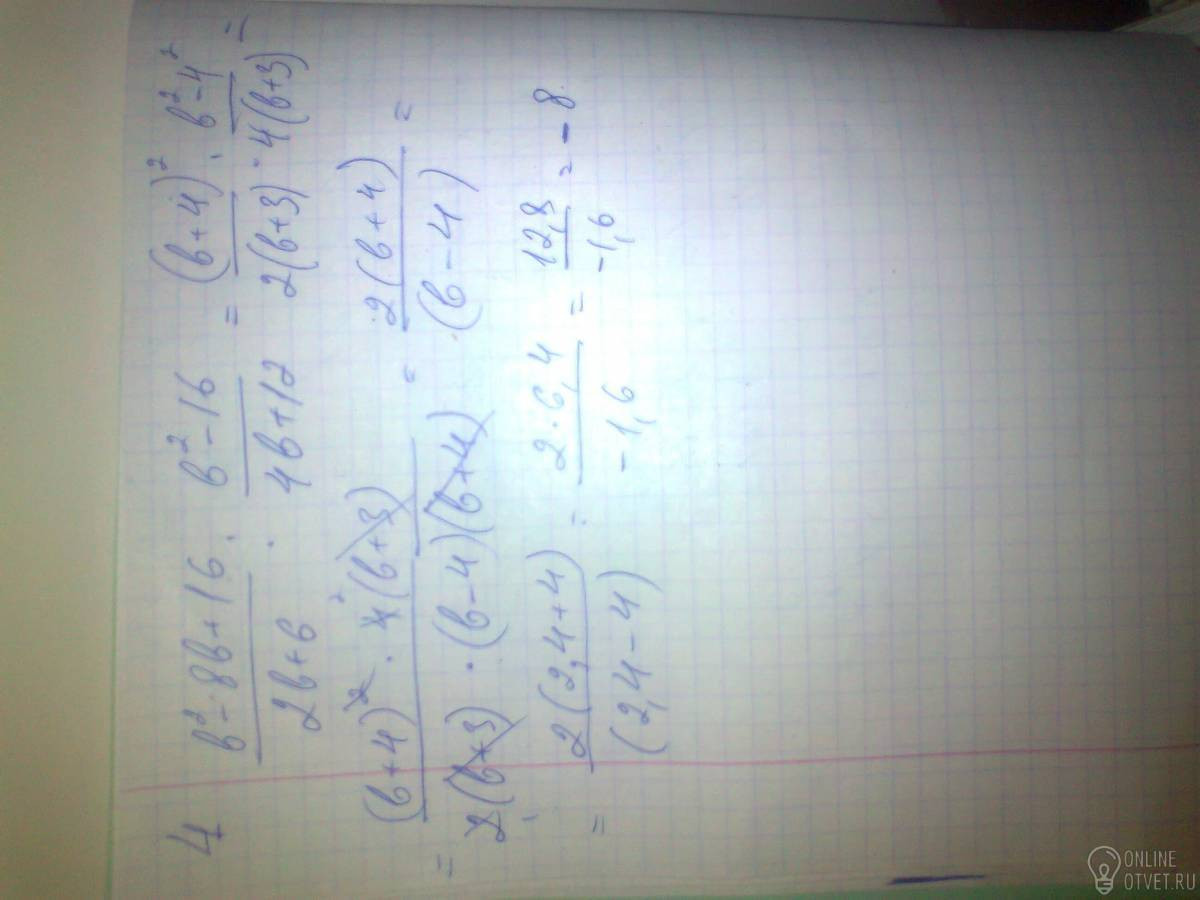 4 (в² - 8в + 16)/(2в + 6) : (в² - 16)/(4в + 12) = (в + 4)²/(2(в + 3)) : (в² - 4²)/(4(в + 3)) =
= ((в + 4)² · 4(в + 3))/(2(в + 3) · (в - 4)(в + 4)) = 2(в + 4)/(в - 4) =
= 2(2,4 + 4)/(2,4 - 4) = 2 · 6,4/-1,6 = 12,8/-1,6 = - 8.
ONLINE
OTVET.RU